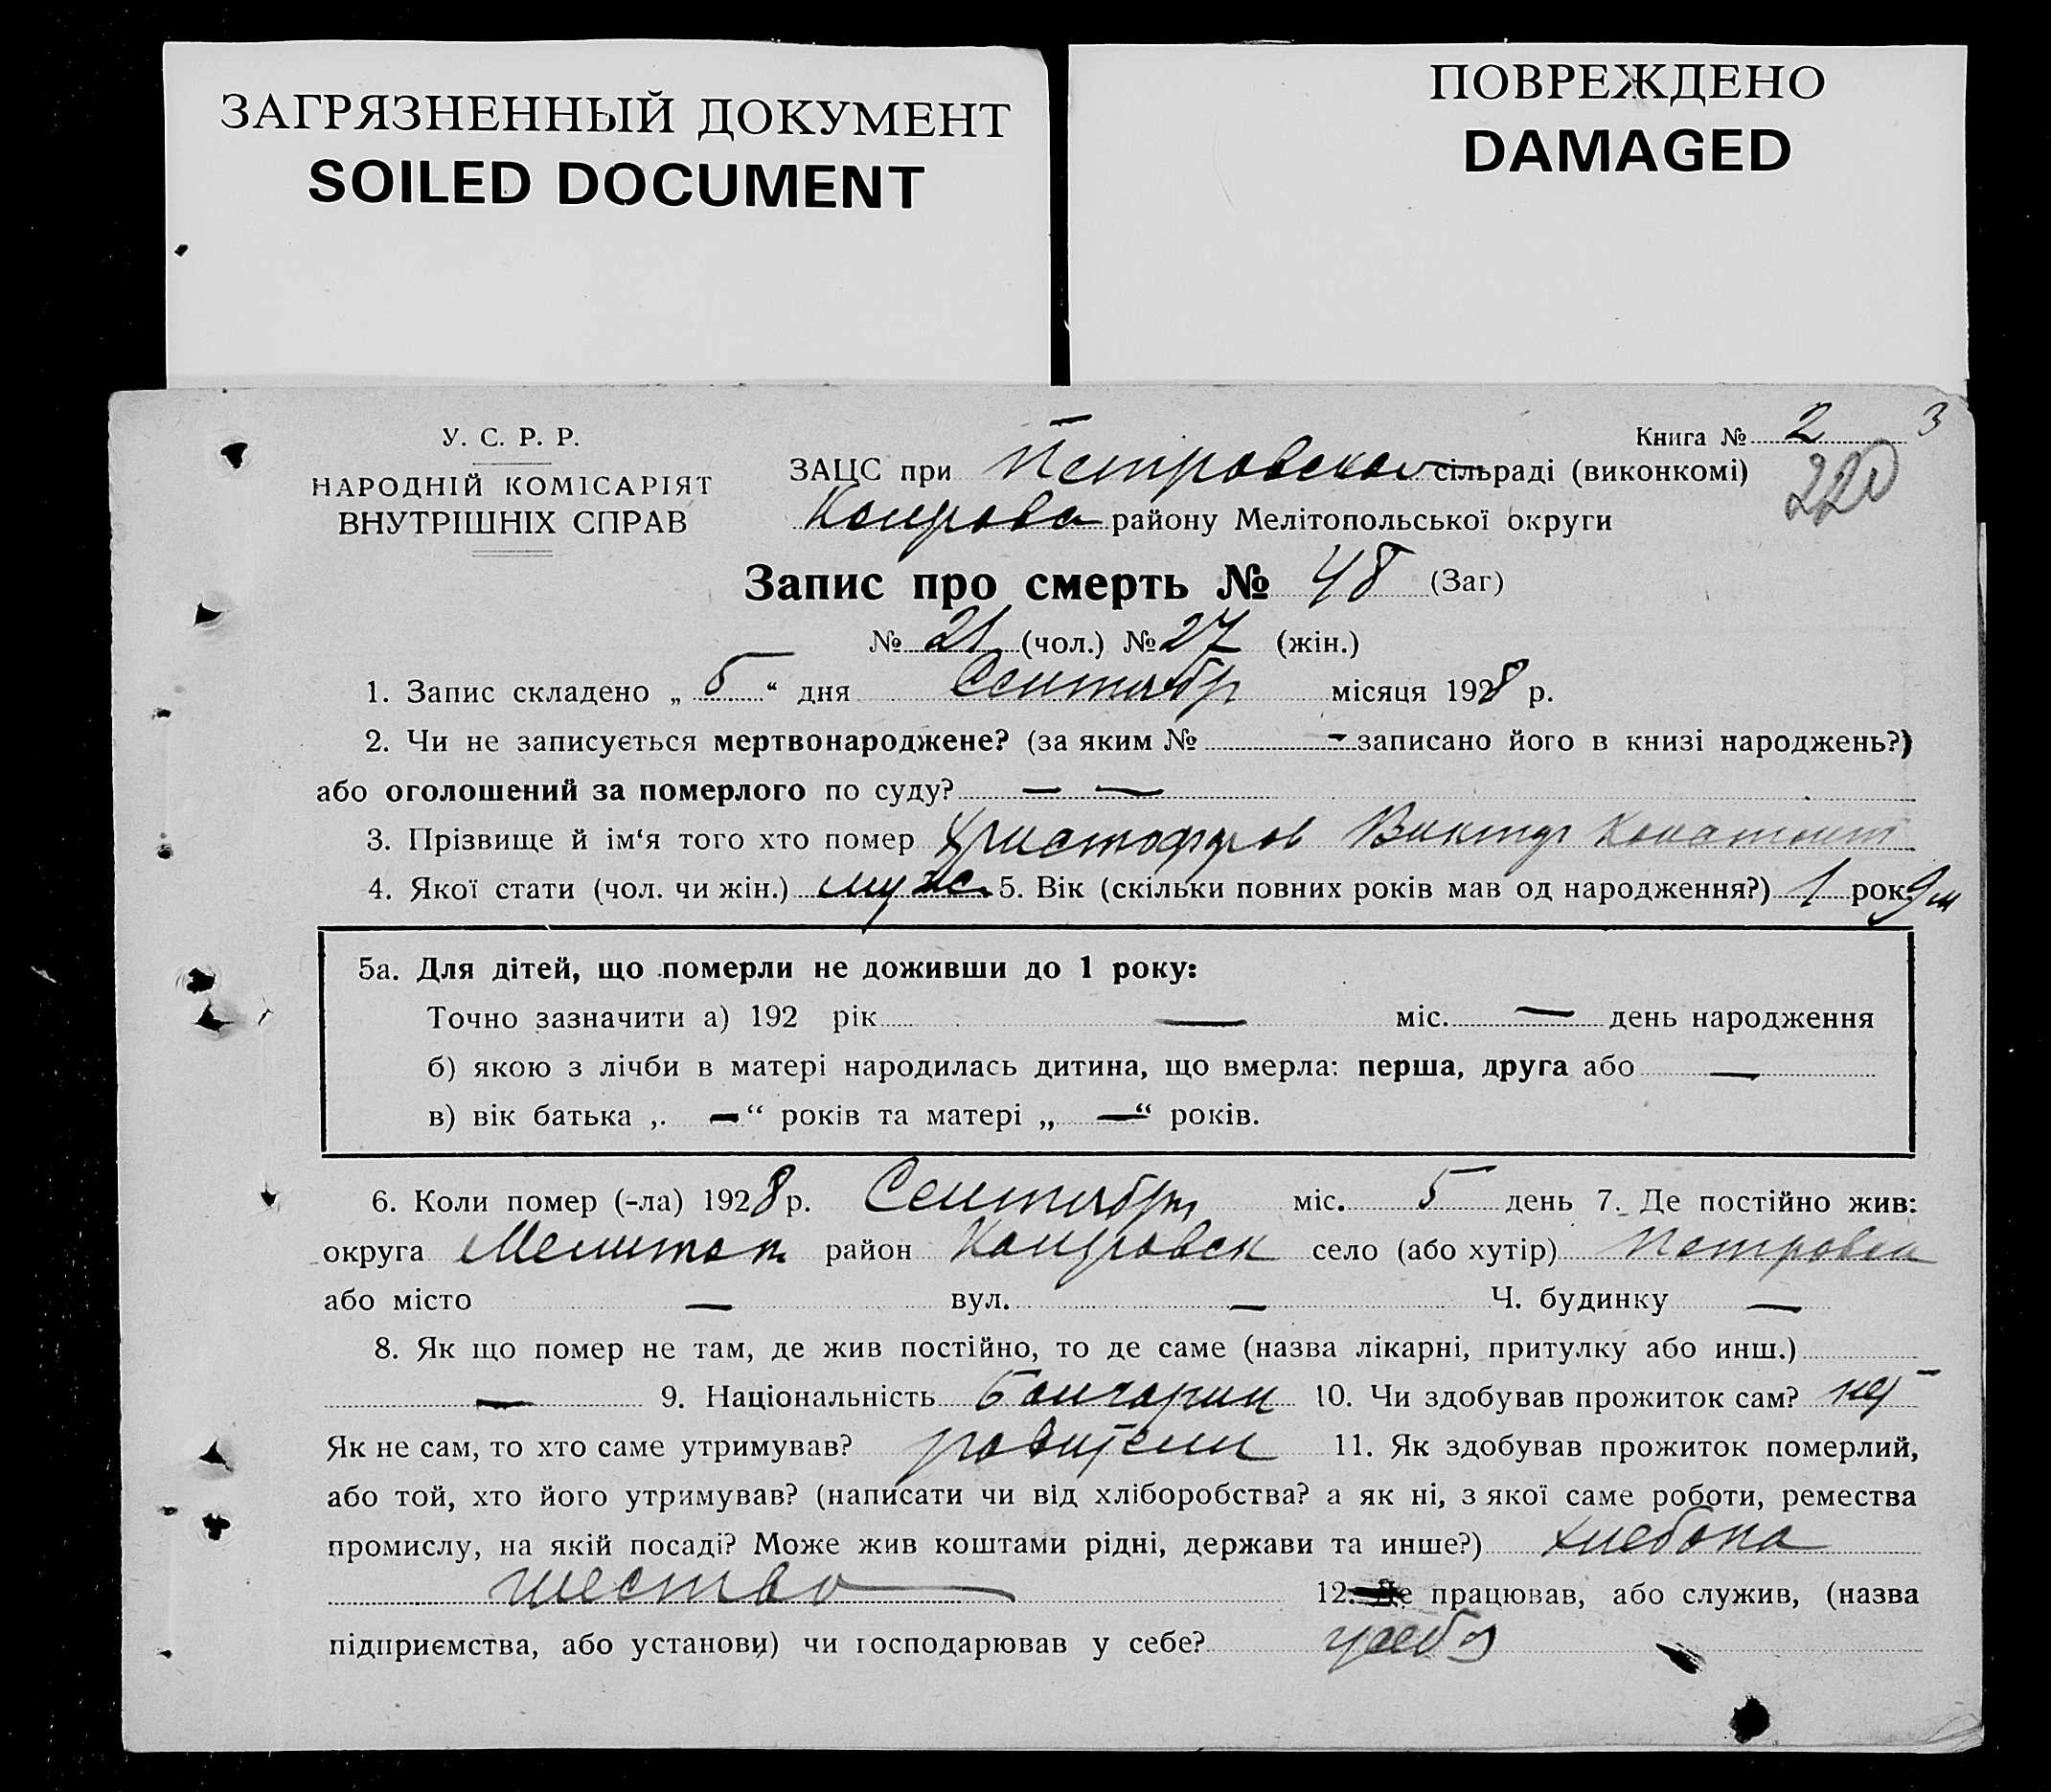 ЗАГРЯЗНЕННЫЙ ДОКУМЕНТ
SOILED DOCUMENT
ПОВРЕЖДЕНО
DAMAGED
Книга № 2 3
220
У. С. Р. Р.
НАРОДНІЙ КОМІСАРІЯТ
ВНУТРІШНІХ СПРАВ
ЗАЦС при Петровской сільраді (виконкомі)
району Мелітопольської округи
Запис про смерть № 48 (Заг)
№ 21 (чол.) № 27 (жін.)
1. Запис складено „ 5 “ дня Сентябр місяця 1928 р.
2. Чи не записується мертвонароджене? (за яким № - записано його в книзі народжень?)
або оголошений за померлого по суду? — —
3. Прізвище й ім‘я того хто помер Христофоров Виктор Констант
4. Якої стати (чол. чи жін.) муж. 5. Вік (скільки повних років мав од народження?) 1 рок. 9 м
5а. Для дітей, що померли не доживши до 1 року:
Точно зазначити а) 192 рік — міс. — день народження
б) якою з лічби в матері народилась дитина, що вмерла: перша, друга або —
в) вік батька „ — “ років та матері „ — “ років.
6. Коли помер (-ла) 1928 р. Сентября міс. 5 день 7. Де постійно жив:
округа Мелитоп район село (або хутір) Петровка
або місто — вул. — Ч. будинку —
8. Як що помер не там, де жив постійно, то де саме (назва лікарні, притулку або инш.)
— 9. Національність Болгарин 10. Чи здобував прожиток сам? нет
Як не сам, то хто саме утримував? родители 11. Як здобував прожиток померлий,
або той, хто його утримував? (написати чи від хліборобства? а як ні, з якої саме роботи, ремества
промислу, на якій посаді? Може жив коштами рідні, держави та инше?) хлебопа
шество 12. Де працював, або служив, (назва
підприємства, або установи) чи господарював у себе? у себя